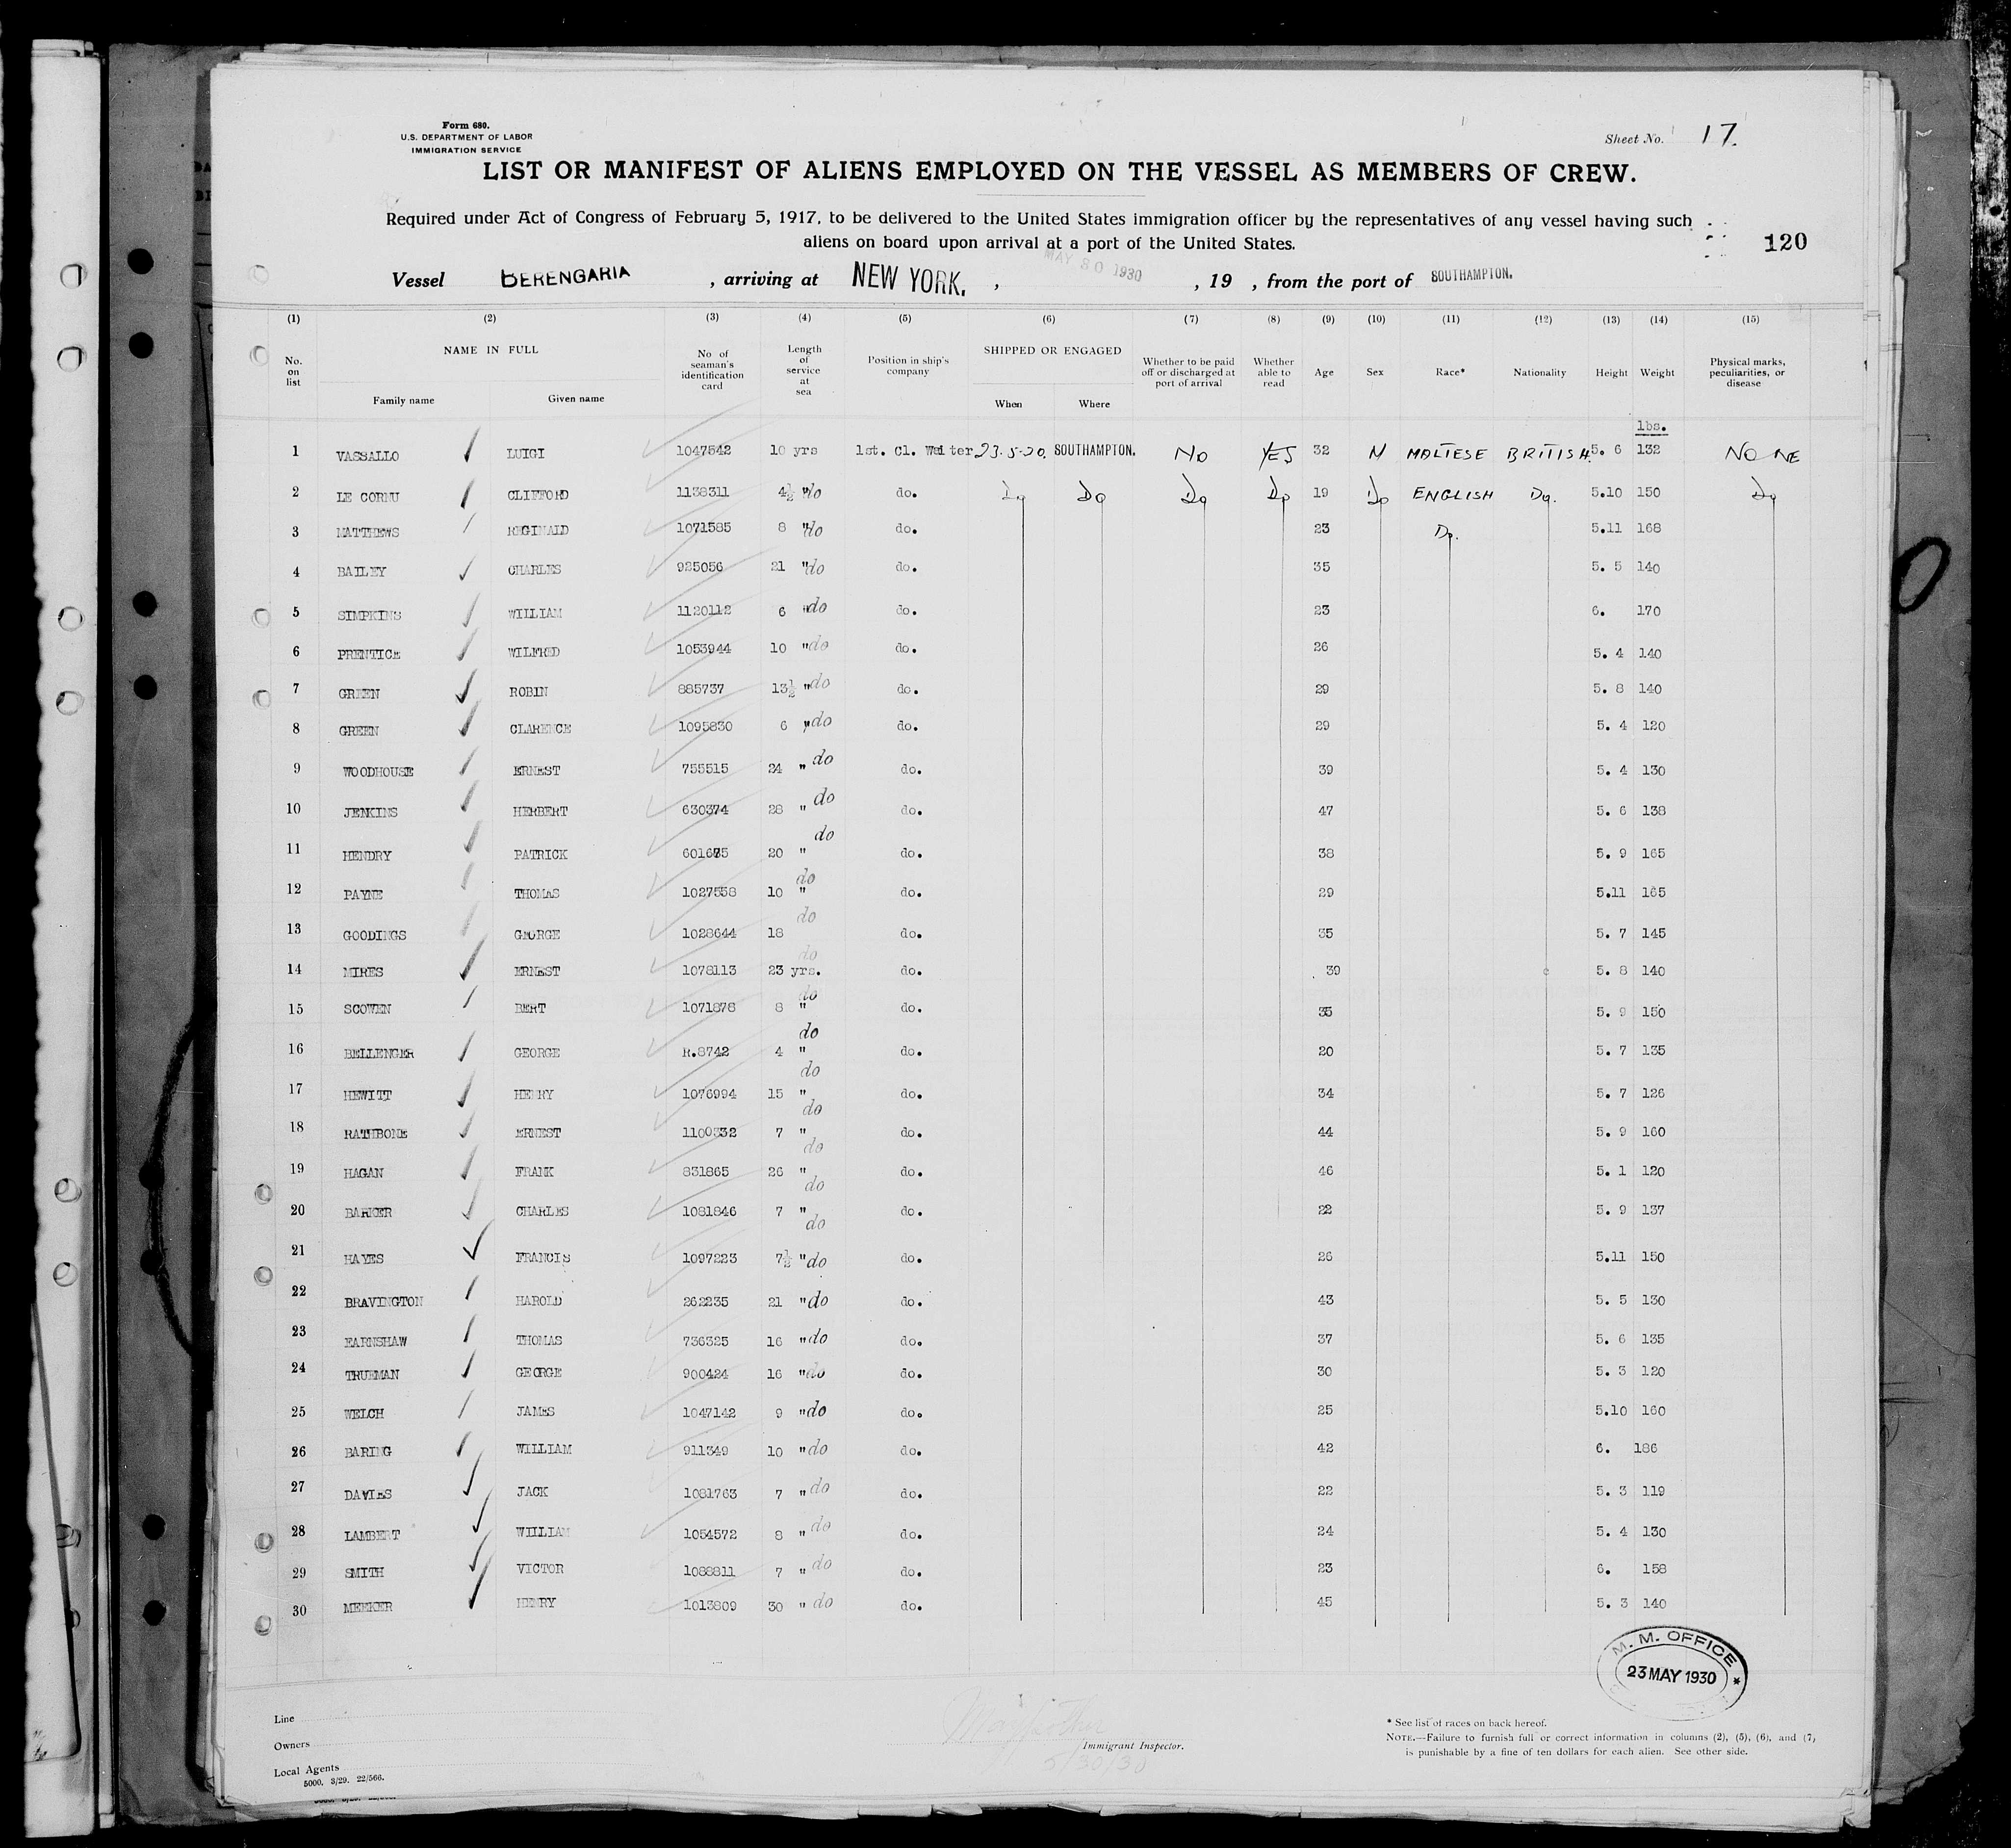 Form 680.
U.S. DEPARTMENT OF LABOR
IMMIGRATION SERVICE
Sheet No. 17.
LIST OR MANIFEST OF ALIENS EMPLOYED ON THE VESSEL AS MEMBERS OF CREW.
Required under Act of Congress of February 5, 1917, to be delivered to the United States immigration officer by the representatives of any vessel having such
aliens on board upon arrival at a port of the United States.
120
Vessel BERENGARIA , arriving at NEW YORK. , MAY 30 1930 , 19 , from the port of SOUTHAMPTON.
(1) (2) (3) (4) (5) (6) (7) (8) (9) (10) (11) (12) (13) (14) (15)
No. on list NAME IN FULL Family name Given name No of seaman's identification card Length of service at sea Position in ship's company SHIPPED OR ENGAGED When Where Whether to be paid off or discharged at port of arrival Whether able to read Age Sex Race* Nationality Height Weight Physical marks, peculiarities, or disease
lbs.
1 VASSALLO LUIGI 1047542 10 yrs 1st. Cl. Waiter 23.5.30. SOUTHAMPTON. No YES 32 M MALTESE BRITISH. 5. 6 132 NONE
2 LE CORNU CLIFFORD 1138311 4½ " do do. Do Do Do Do 19 Do ENGLISH Do. 5.10 150 Do
3 MATTHEWS REGINALD 1071585 8 " do do. 23 Do. 5.11 168
4 BAILEY CHARLES 925056 21 " do do. 35 5. 5 140
5 SIMPKINS WILLIAM 1120112 6 " do do. 23 6. 170
6 PRENTICE WILFRED 1053944 10 " do do. 26 5. 4 140
7 GREEN ROBIN 885737 13½ " do do. 29 5. 8 140
8 GREEN CLARENCE 1095830 6 " do do. 29 5. 4 120
9 WOODHOUSE ERNEST 755515 24 " do do. 39 5. 4 130
10 JENKINS HERBERT 630374 28 " do do. 47 5. 6 138
11 HENDRY PATRICK 20 " do do. 38 5. 9 165
12 PAYNE THOMAS 1027558 10 " do do. 29 5.11 165
13 GOODINGS GEORGE 1028644 18 do do. 35 5. 7 145
14 MIRES ERNEST 1078113 23 yrs. do do. 39 5. 8 140
15 SCOWEN BERT 1071878 8 " do do. 35 5. 9 150
16 BELLENGER GEORGE R.8742 4 " do do. 20 5. 7 135
17 HEWITT HENRY 1076994 15 " do do. 34 5. 7 126
18 RATHBONE ERNEST 1100332 7 " do do. 44 5. 9 160
19 HAGAN FRANK 831865 26 " do do. 46 5. 1 120
20 BARKER CHARLES 1081846 7 " do do. 22 5. 9 137
21 HAYES FRANCIS 1097223 7½ " do do. 26 5.11 150
22 BRAVINGTON HAROLD 262235 21 " do do. 43 5. 5 130
23 EARNSHAW THOMAS 736325 16 " do do. 37 5. 6 135
24 TRUEMAN GEORGE 900424 16 " do do. 30 5. 3 120
25 WELCH JAMES 1047142 9 " do do. 25 5.10 160
26 BARING WILLIAM 911349 10 " do do. 42 6. 186
27 DAVIES JACK 1081763 7 " do do. 22 5. 3 119
28 LAMBERT WILLIAM 1054572 8 " do do. 24 5. 4 130
29 SMITH VICTOR 1088811 7 " do do. 23 6. 158
30 MEEKER HENRY 1013809 30 " do do. 45 5. 3 140
M. M. OFFICE *
23 MAY 1930
Line
Owners
Local Agents
5000. 3/29. 22/566.
Immigrant Inspector.
5/30/30
* See list of races on back hereof.
NOTE.—Failure to furnish full or correct information in columns (2), (5), (6), and (7),
is punishable by a fine of ten dollars for each alien. See other side.